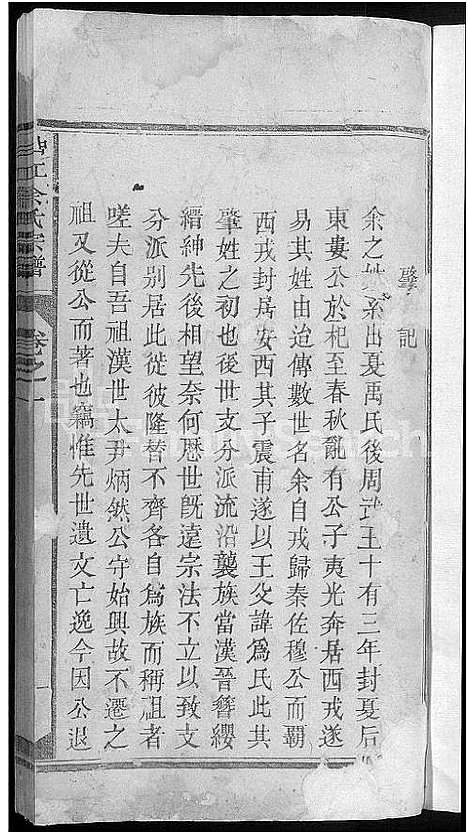 肇記
余之姓系出夏禹氏後周武王十有三年封夏后
東婁公於杞至春秋亂有公子夷光奔居西戎遂
易其姓由迨傳數世名余自戎歸秦佐穆公而霸
西戎封居安西其子震甫遂以王父諱爲氏此其
肇姓之初也後世支分派流沿襲族當漢晉簪纓
縉紳先後相望奈何歷世既遠宗法不立以致支
分派别居此從彼隆替不齊各自爲族而稱祖者
嗟夫自吾祖漢世太尹炳然公守始興故不遷之
祖又從公而著也竊惟先世遺文亡逸今因公退
余氏宗譜
卷之一
FamilySearch